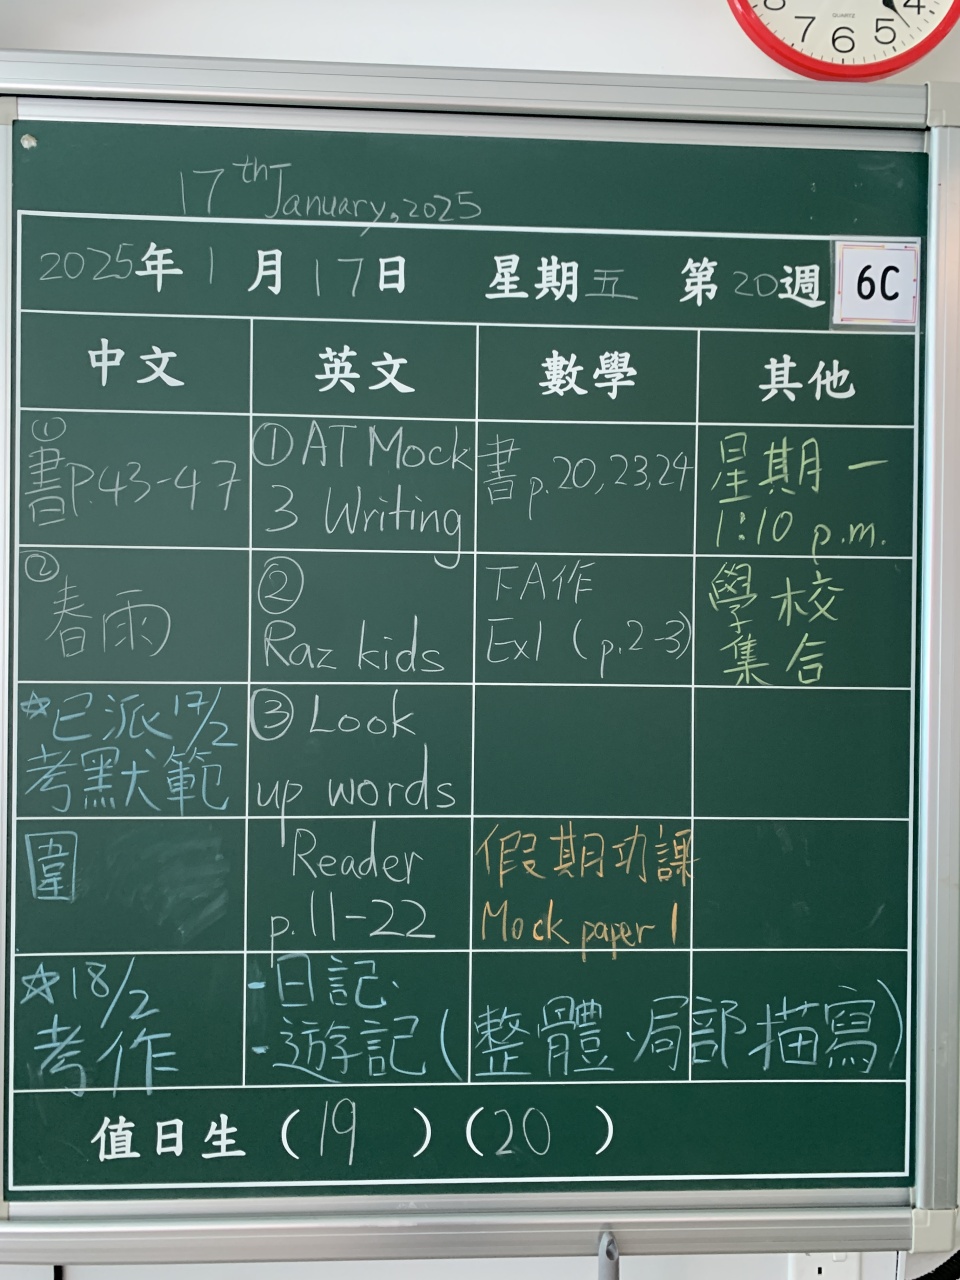 7 6 5 4
QUARTZ
17th January, 2025
2025年1月17日 星期五 第20週 6C
中文 英文 數學 其他
① 書P.43-47
① AT Mock
3 Writing
書p.20,23,24
星期一
1:10 p.m.
② 春雨
②
Raz kids
下A作
Ex1 (p.2-3)
學校
集合
☆已派17/2
考默範
③ Look
up words
圍
Reader
p.11-22
假期功課
Mock paper 1
☆18/2
考作
-日記.
-遊記(整體、局部描寫)
值日生 (19) (20)